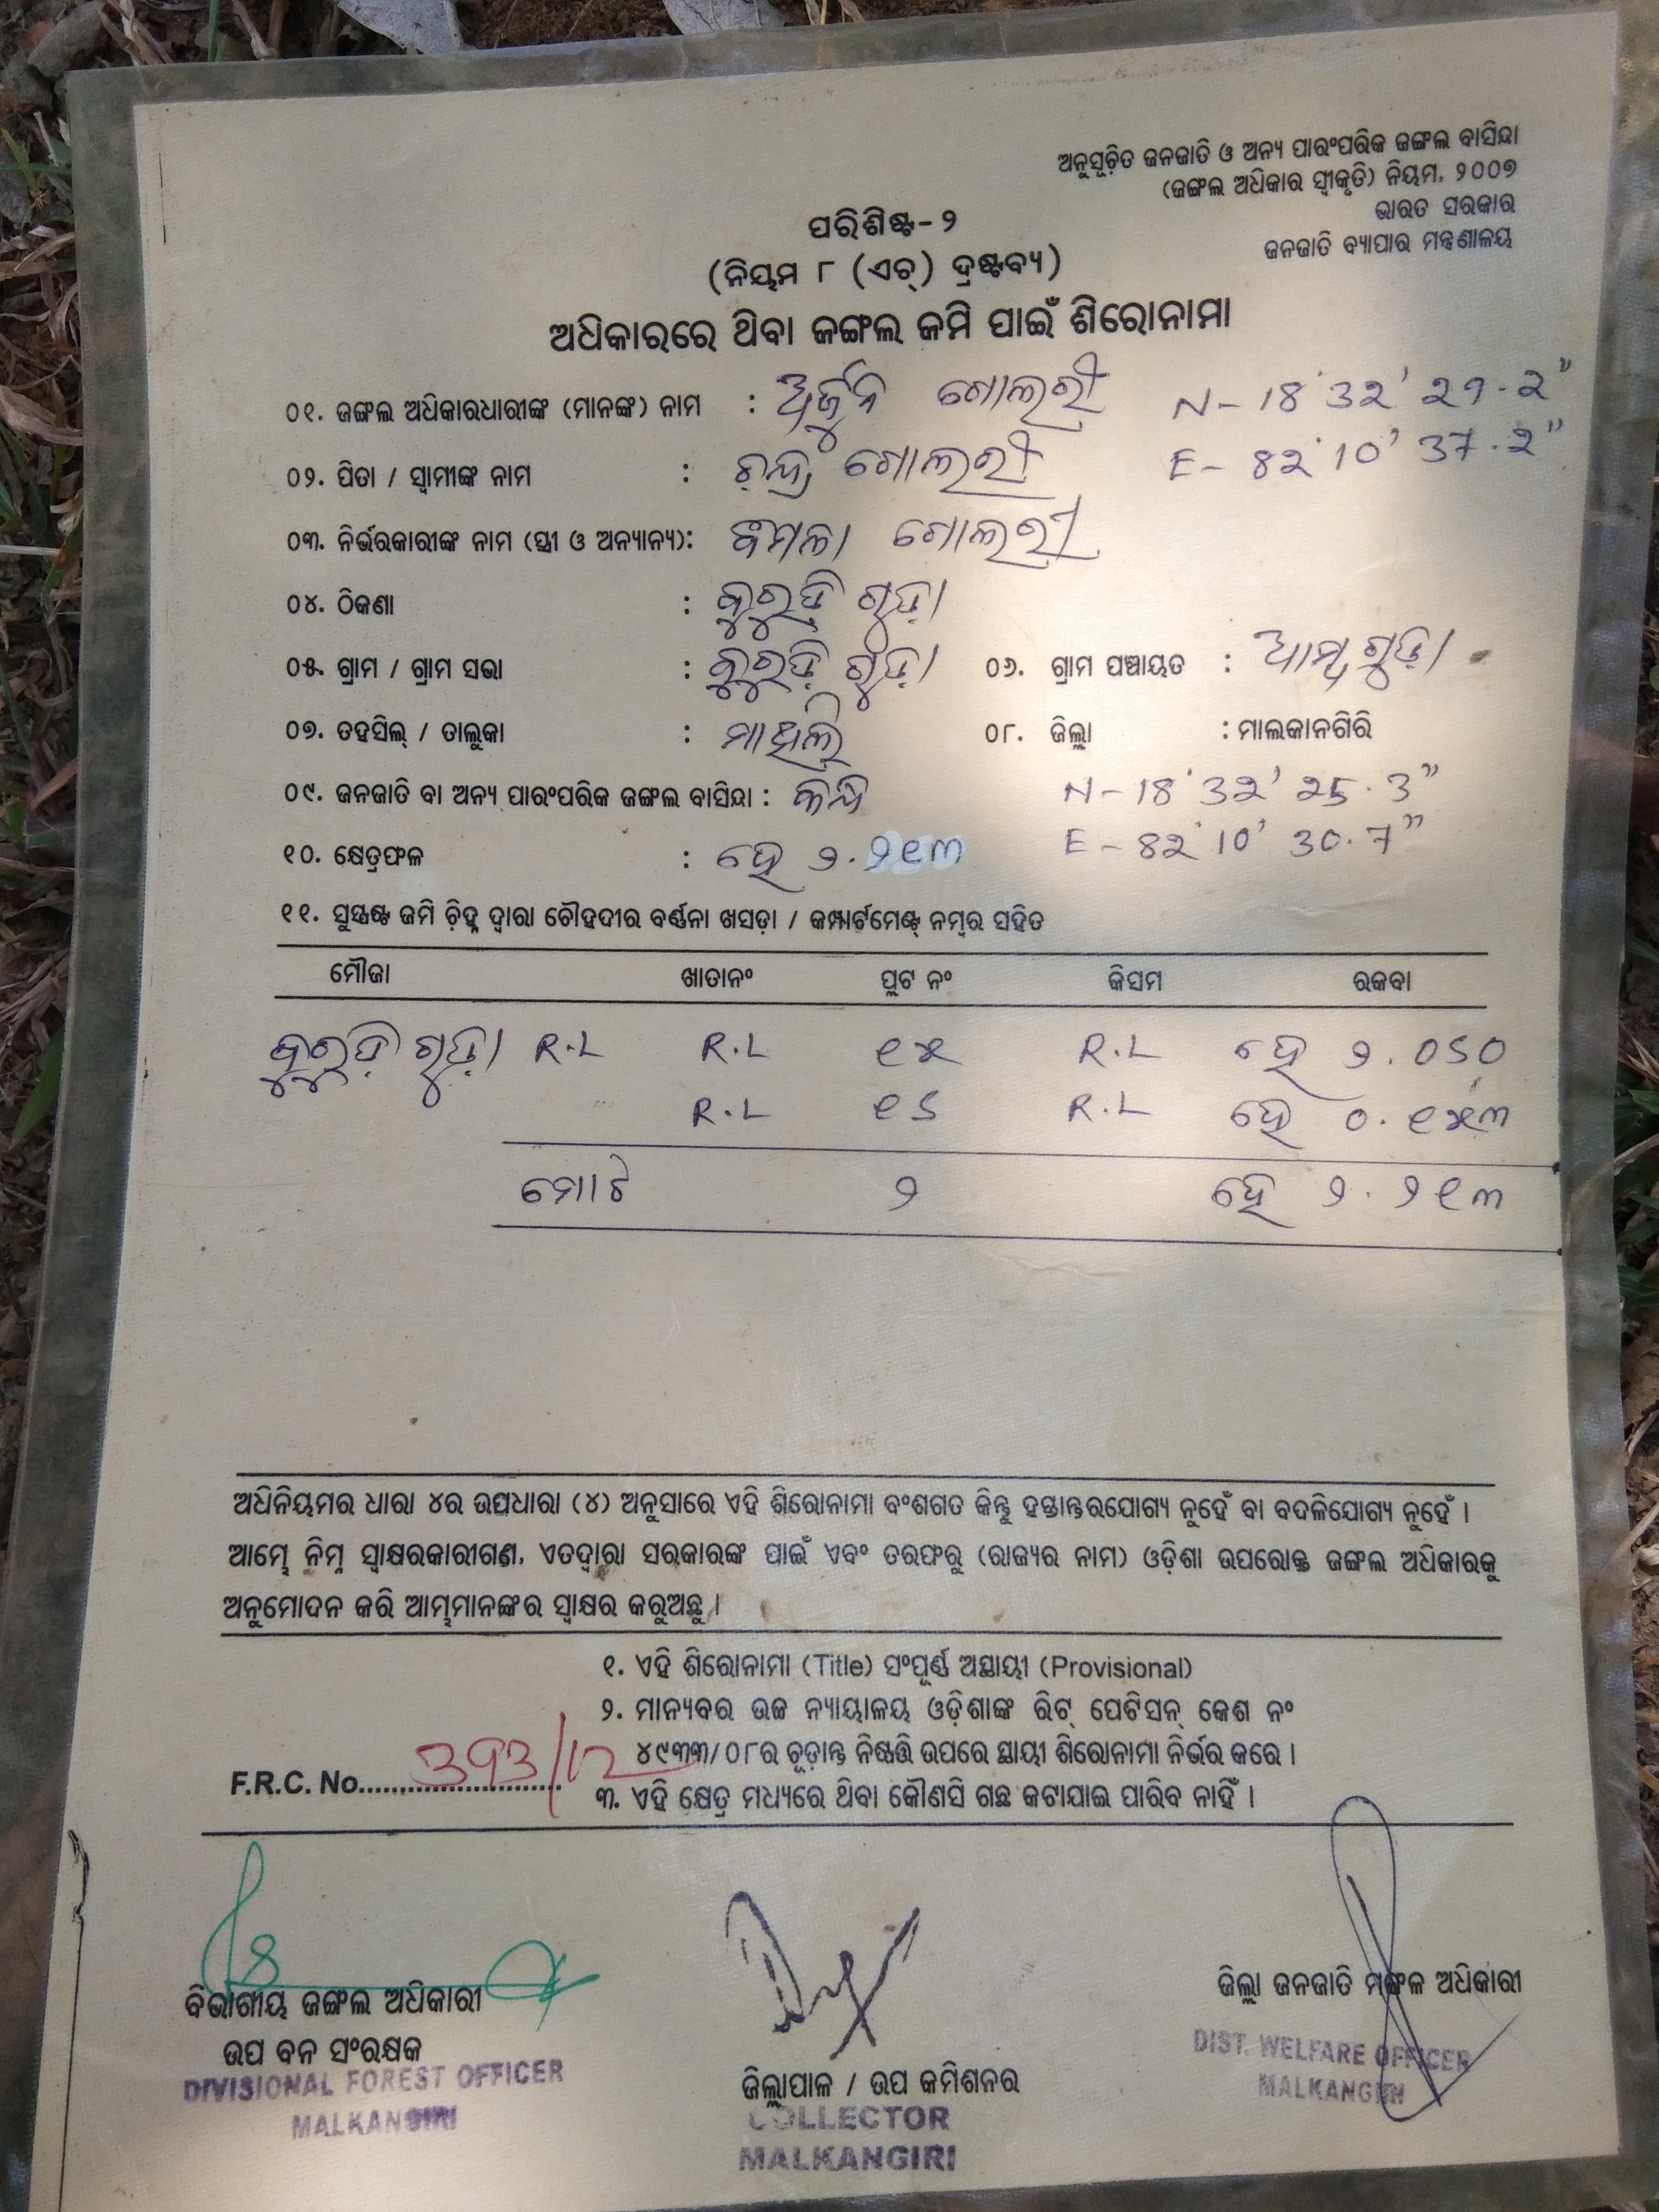 ଅନୁସୂଚିତ ଜନଜାତି ଓ ଅନ୍ୟ ପାରଂପରିକ ଜଙ୍ଗଲ ବାସିନ୍ଦା
(ଜଙ୍ଗଲ ଅଧିକାର ସ୍ୱୀକୃତି) ନିୟମ, ୨୦୦୭
ଭାରତ ସରକାର
ଜନଜାତି ବ୍ୟାପାର ମନ୍ତ୍ରଣାଳୟ
ପରିଶିଷ୍ଟ-୨
(ନିୟମ ୮ (ଏଚ୍) ଦ୍ରଷ୍ଟବ୍ୟ)
ଅଧିକାରରେ ଥିବା ଜଙ୍ଗଲ ଜମି ପାଇଁ ଶିରୋନାମା
୦୧. ଜଙ୍ଗଲ ଅଧିକାରଧାରୀଙ୍କ (ମାନଙ୍କ) ନାମ : ଅର୍ଜୁନ ଗୋଲରୀ N-18°32'29.2"
୦୨. ପିତା / ସ୍ୱାମୀଙ୍କ ନାମ : ଚନ୍ଦ୍ର ଗୋଲରୀ E-82°10'37.2"
୦୩. ନିର୍ଭରକାରୀଙ୍କ ନାମ (ସ୍ତ୍ରୀ ଓ ଅନ୍ୟାନ୍ୟ): ଗୋଲରୀ
୦୪. ଠିକଣା : କୁରୁଡ଼ି ଗୁଡ଼ା
୦୫. ଗ୍ରାମ / ଗ୍ରାମ ସଭା : କୁରୁଡ଼ି ଗୁଡ଼ା ୦୬. ଗ୍ରାମ ପଞ୍ଚାୟତ : ଆମ୍ବଗୁଡ଼ା
୦୭. ତହସିଲ୍ / ତାଲୁକା : ମାଥିଲି ୦୮. ଜିଲ୍ଲା : ମାଲକାନଗିରି
୦୯. ଜନଜାତି ବା ଅନ୍ୟ ପାରଂପରିକ ଜଙ୍ଗଲ ବାସିନ୍ଦା : N-18°32'25.3"
୧୦. କ୍ଷେତ୍ରଫଳ : ହେ ୨.୨୧୩ E-82°10'30.7"
୧୧. ସୁସ୍ପଷ୍ଟ ଜମି ଚିହ୍ନ ଦ୍ୱାରା ଚୌହଦୀର ବର୍ଣ୍ଣନା ଖସଡ଼ା / କମ୍ପାର୍ଟମେଣ୍ଟ୍ ନମ୍ବର ସହିତ
ମୌଜା ଖାତାନଂ ପ୍ଲଟ ନଂ କିସମ ରକବା
କୁରୁଡ଼ି ଗୁଡ଼ା R.L R.L ୧୫ R.L ହେ ୨.୦୬୦
R.L ୧୬ R.L ହେ ୦.୧୫୩
ମୋଟ ୨ ହେ ୨.୨୧୩
ଅଧିନିୟମର ଧାରା ୪ର ଉପଧାରା (୪) ଅନୁସାରେ ଏହି ଶିରୋନାମା ବଂଶଗତ କିନ୍ତୁ ହସ୍ତାନ୍ତରଯୋଗ୍ୟ ନୁହେଁ ବା ବଦଳିଯୋଗ୍ୟ ନୁହେଁ ।
ଆମ୍ଭେ ନିମ୍ନ ସ୍ୱାକ୍ଷରକାରୀଗଣ, ଏତଦ୍ୱାରା ସରକାରଙ୍କ ପାଇଁ ଏବଂ ତରଫରୁ (ରାଜ୍ୟର ନାମ) ଓଡ଼ିଶା ଉପରୋକ୍ତ ଜଙ୍ଗଲ ଅଧିକାରକୁ
ଅନୁମୋଦନ କରି ଆମ୍ଭମାନଙ୍କର ସ୍ୱାକ୍ଷର କରୁଅଛୁ ।
୧. ଏହି ଶିରୋନାମା (Title) ସଂପୂର୍ଣ୍ଣ ଅସ୍ଥାୟୀ (Provisional)
୨. ମାନ୍ୟବର ଉଚ୍ଚ ନ୍ୟାୟାଳୟ ଓଡ଼ିଶାଙ୍କ ରିଟ୍ ପେଟିସନ୍ କେଶ ନଂ
୪୯୩୩/୦୮ର ଚୂଡ଼ାନ୍ତ ନିଷ୍ପତ୍ତି ଉପରେ ସ୍ଥାୟୀ ଶିରୋନାମା ନିର୍ଭର କରେ ।
F.R.C. No. 393/12
୩. ଏହି କ୍ଷେତ୍ର ମଧ୍ୟରେ ଥିବା କୌଣସି ଗଛ କଟାଯାଇ ପାରିବ ନାହିଁ ।
ବିଭାଗୀୟ ଜଙ୍ଗଲ ଅଧିକାରୀ
ଉପ ବନ ସଂରକ୍ଷକ
DIVISIONAL FOREST OFFICER
MALKANGIRI
ଜିଲ୍ଲାପାଳ / ଉପ କମିଶନର
COLLECTOR
MALKANGIRI
ଜିଲ୍ଲା ଜନଜାତି ମଙ୍ଗଳ ଅଧିକାରୀ
DIST. WELFARE OFFICER
MALKANGIRI